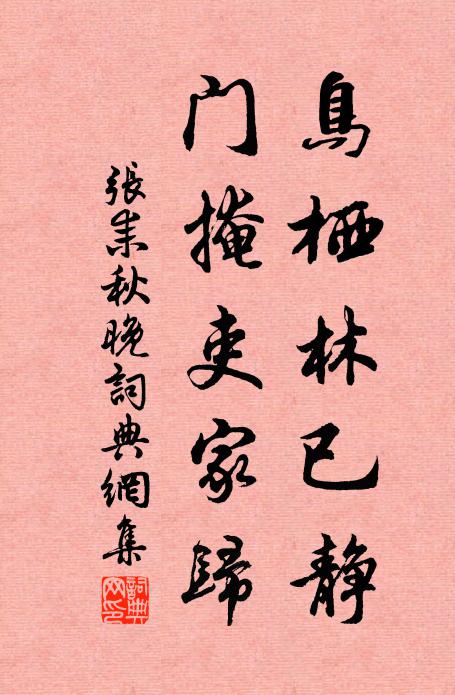 鳥栖林已静
門掩吏家歸
張耒秋晚詞典網集
詞典網印